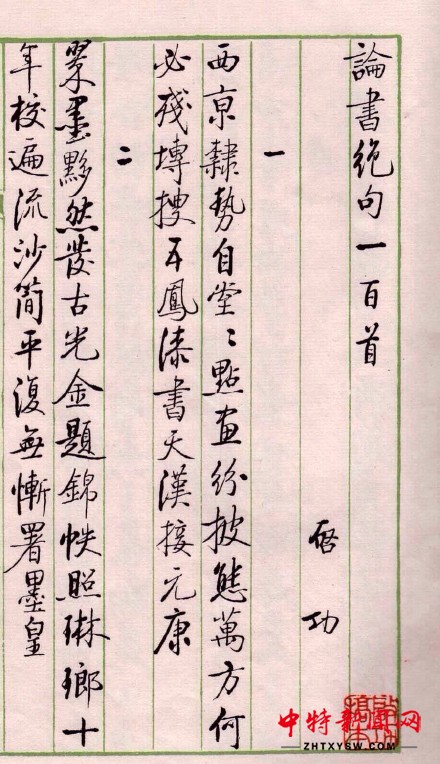 論書絕句一百首
啓功
一
西京隸勢自堂〻點畫紛披態萬方何
必殘塼搜五鳳漆書天漢接元康
二
翠墨黟然發古光金題錦帙照琳瑯十
年校遍流沙簡平復無慚署墨皇
中特新闻网
ZHTXYSW.COM